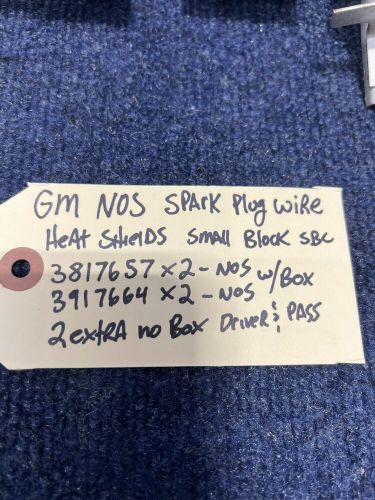 GM NOS SPArK Plug wire
HeAt SHIelDS SmAll Block SBC
3817657 x 2 - NOS w/Box
3917664 x 2 - NOS
2 extrA no Box Driver & PASS